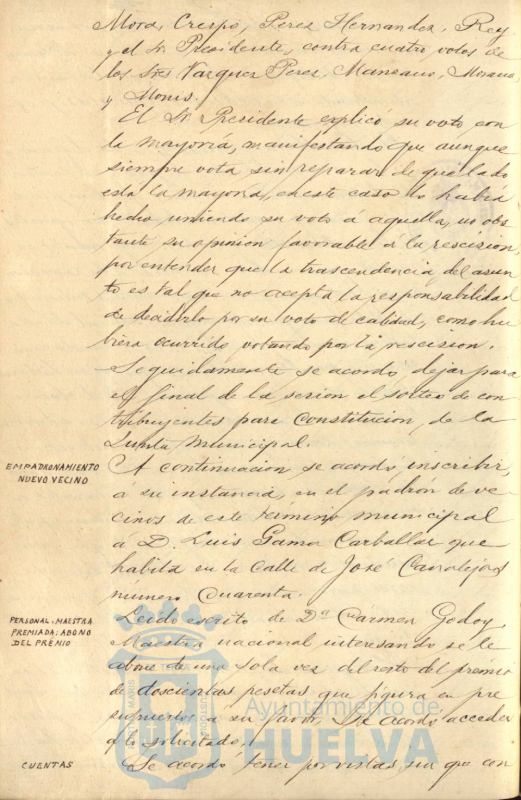 Mora, Crespo, Perez Hernandez, Rey
y el Sr. Presidente, contra cuatro votos de
los Sres Vazquez Perez, Manzano, Moreno,
y Monis.
El Sr. Presidente explicó su voto con
la mayoría, manifestando que aunque
siempre vota sin reparar de que lado
está la mayoria, en este caso lo habia
hecho uniendo su voto á aquella, no obs
tante su opinion favorable á la rescision,
por entender que la trascendencia del asun
to es tal que no acepta la responsabilidad
de decidirlo por su voto de calidad, como hu
biera ocurrido votando por la rescision.
Seguidamente se acordó dejar para
el final de la sesion el sorteo de con
tribuyentes para constitucion de la
Junta Municipal.
EMPADRONAMIENTO
NUEVO VECINO
A continuacion se acordó inscribir,
á su instancia, en el padrón de ve
cinos de este término municipal
á D. Luis Gamor Carballar que
habita en la calle de José Canalejas
número cuarenta.
PERSONAL: MAESTRA
PREMIADA: ABONO
DEL PREMIO
Leido escrito de Dª Cármen Godoy,
Maestra nacional interesando se le
abone de una sola vez el resto del premio
de doscientas pesetas que figura en pre
supuestos a su favor, Se acordó acceder
á lo solicitado.
CUENTAS
Se acordó tener por vistas, sin que con
Ayuntamiento de
HUELVA